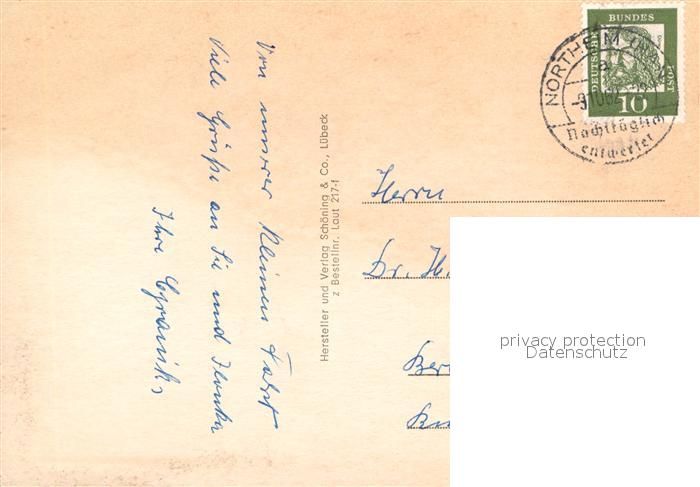 Von unserer kleinen Fahrt
Viele Grüße an Sie und Ilonka
Ihre
Hersteller und Verlag Schöning & Co., Lübeck
z Bestellnr. Laut 217-f
DEUTSCHE BUNDES POST
10
NORTHEIM
Nachträglich
entwertet
Herrn
Dr. H.
Ber
privacy protection
Datenschutz